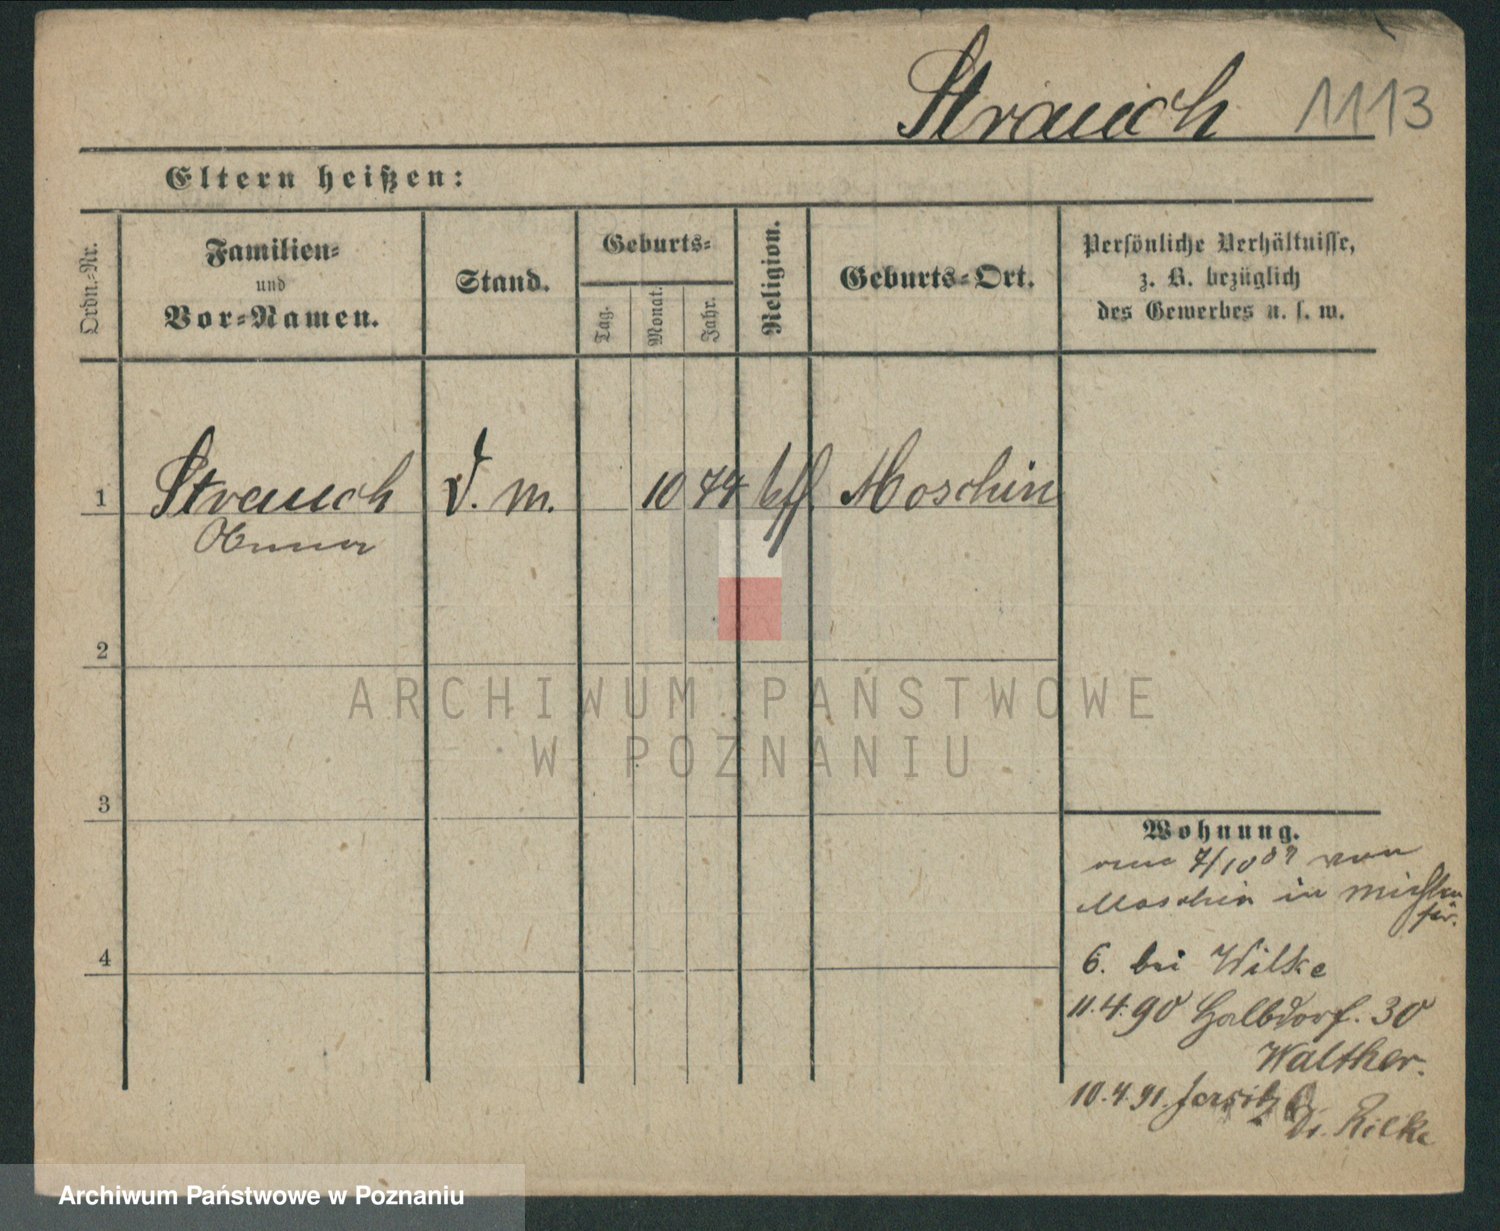 Strauch 1113
Eltern heißen:
Ordn.-Nr.
Familien-
und
Vor-Namen.
Stand.
Geburts-
Tag.
Monat.
Jahr.
Religion.
Geburts-Ort.
Persönliche Verhältnisse,
z. B. bezüglich
des Gewerbes u. s. w.
1 Strauch D. M. 10 74 Moschin
Anna
2
3
4
ARCHIWUM PAŃSTWOWE
W POZNANIU
Wohnung.
7/10 89 von
Moschin in
6. bei Wilke
11.4.90 Halbdorf. 30
Walther.
10.4.91. Jersitz
Archiwum Państwowe w Poznaniu